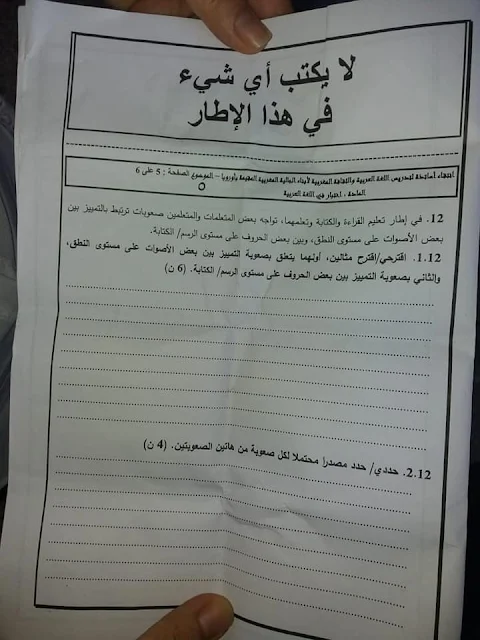 لا يكتب أي شيء
في هذا الإطار
انتقاء أساتذة لتدريس اللغة العربية والثقافة المغربية لأبناء الجالية المغربية المقيمة بأوروبا - الموضوع الصفحة : 5 على 6
المادة : اختبار في اللغة العربية
12. في إطار تعليم القراءة والكتابة وتعلمهما، تواجه بعض المتعلمات والمتعلمين صعوبات ترتبط بالتمييز بين
بعض الأصوات على مستوى النطق، وبين بعض الحروف على مستوى الرسم/ الكتابة.
1.12. اقترحي/اقترح مثالين، أولهما يتعلق بصعوبة التمييز بين بعض الأصوات على مستوى النطق،
والثاني بصعوبة التمييز بين بعض الحروف على مستوى الرسم/ الكتابة. (6 ن)
2.12. حددي/ حدد مصدرا محتملا لكل صعوبة من هاتين الصعوبتين. (4 ن)